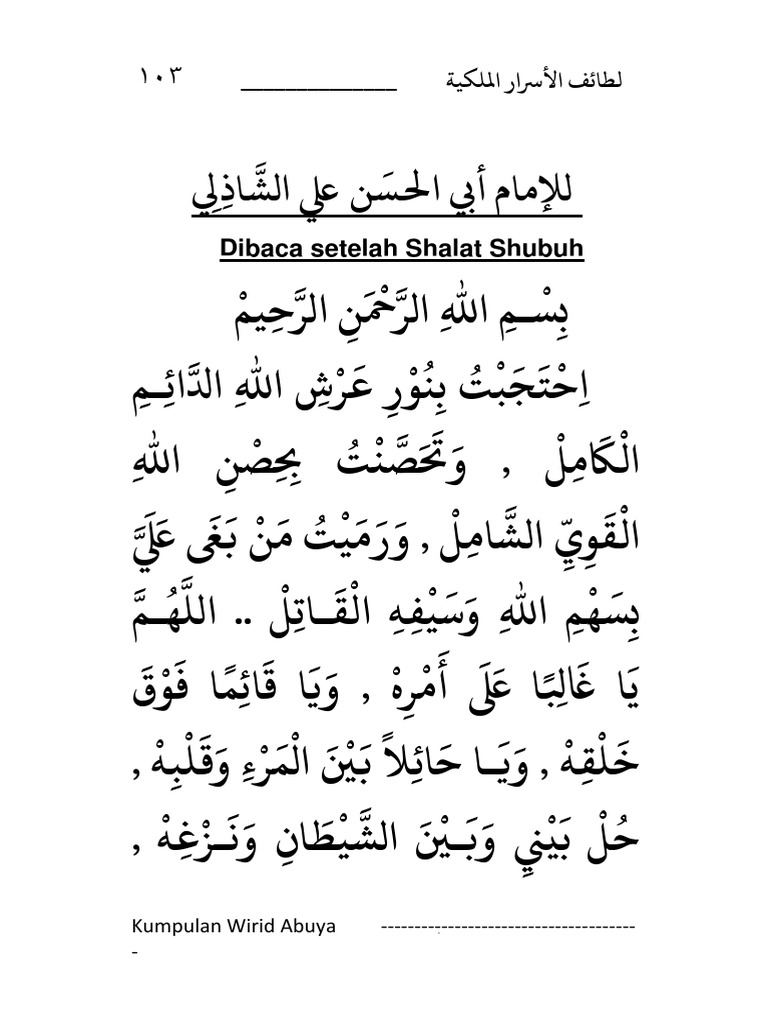 لطائف الأسرار الملكية ______________ ١٠٣
للإمام أبي الحسَن علي الشَّاذِلِي
Dibaca setelah Shalat Shubuh
بِسْــمِ اللهِ الرَّحْمَنِ الرَّحِيمْ
اِحْتَجَبْتُ بِنُوْرِ عَرْشِ اللهِ الدَّائِــمِ
الْكَامِلْ , وَتَحَصَّنْتُ بِحِصْنِ اللهِ
الْقَوِيِّ الشَّامِلْ , وَرَمَيْتُ مَنْ بَغَى عَلَيَّ
بِسَهْمِ اللهِ وَسَيْفِهِ الْقَــاتِلْ .. اللَّهُــمَّ
يَا غَالِبًا عَلَى أَمْرِهْ , وَيَا قَائِمًا فَوْقَ
خَلْقِهْ , وَيَــا حَائِلاً بَيْنَ الْمَرْءِ وَقَلْبِهْ ,
حُلْ بَيْنِي وَبَــيْنَ الشَّيْطَانِ وَنَــزْغِهْ ,
Kumpulan Wirid Abuya --------------------------------------
-